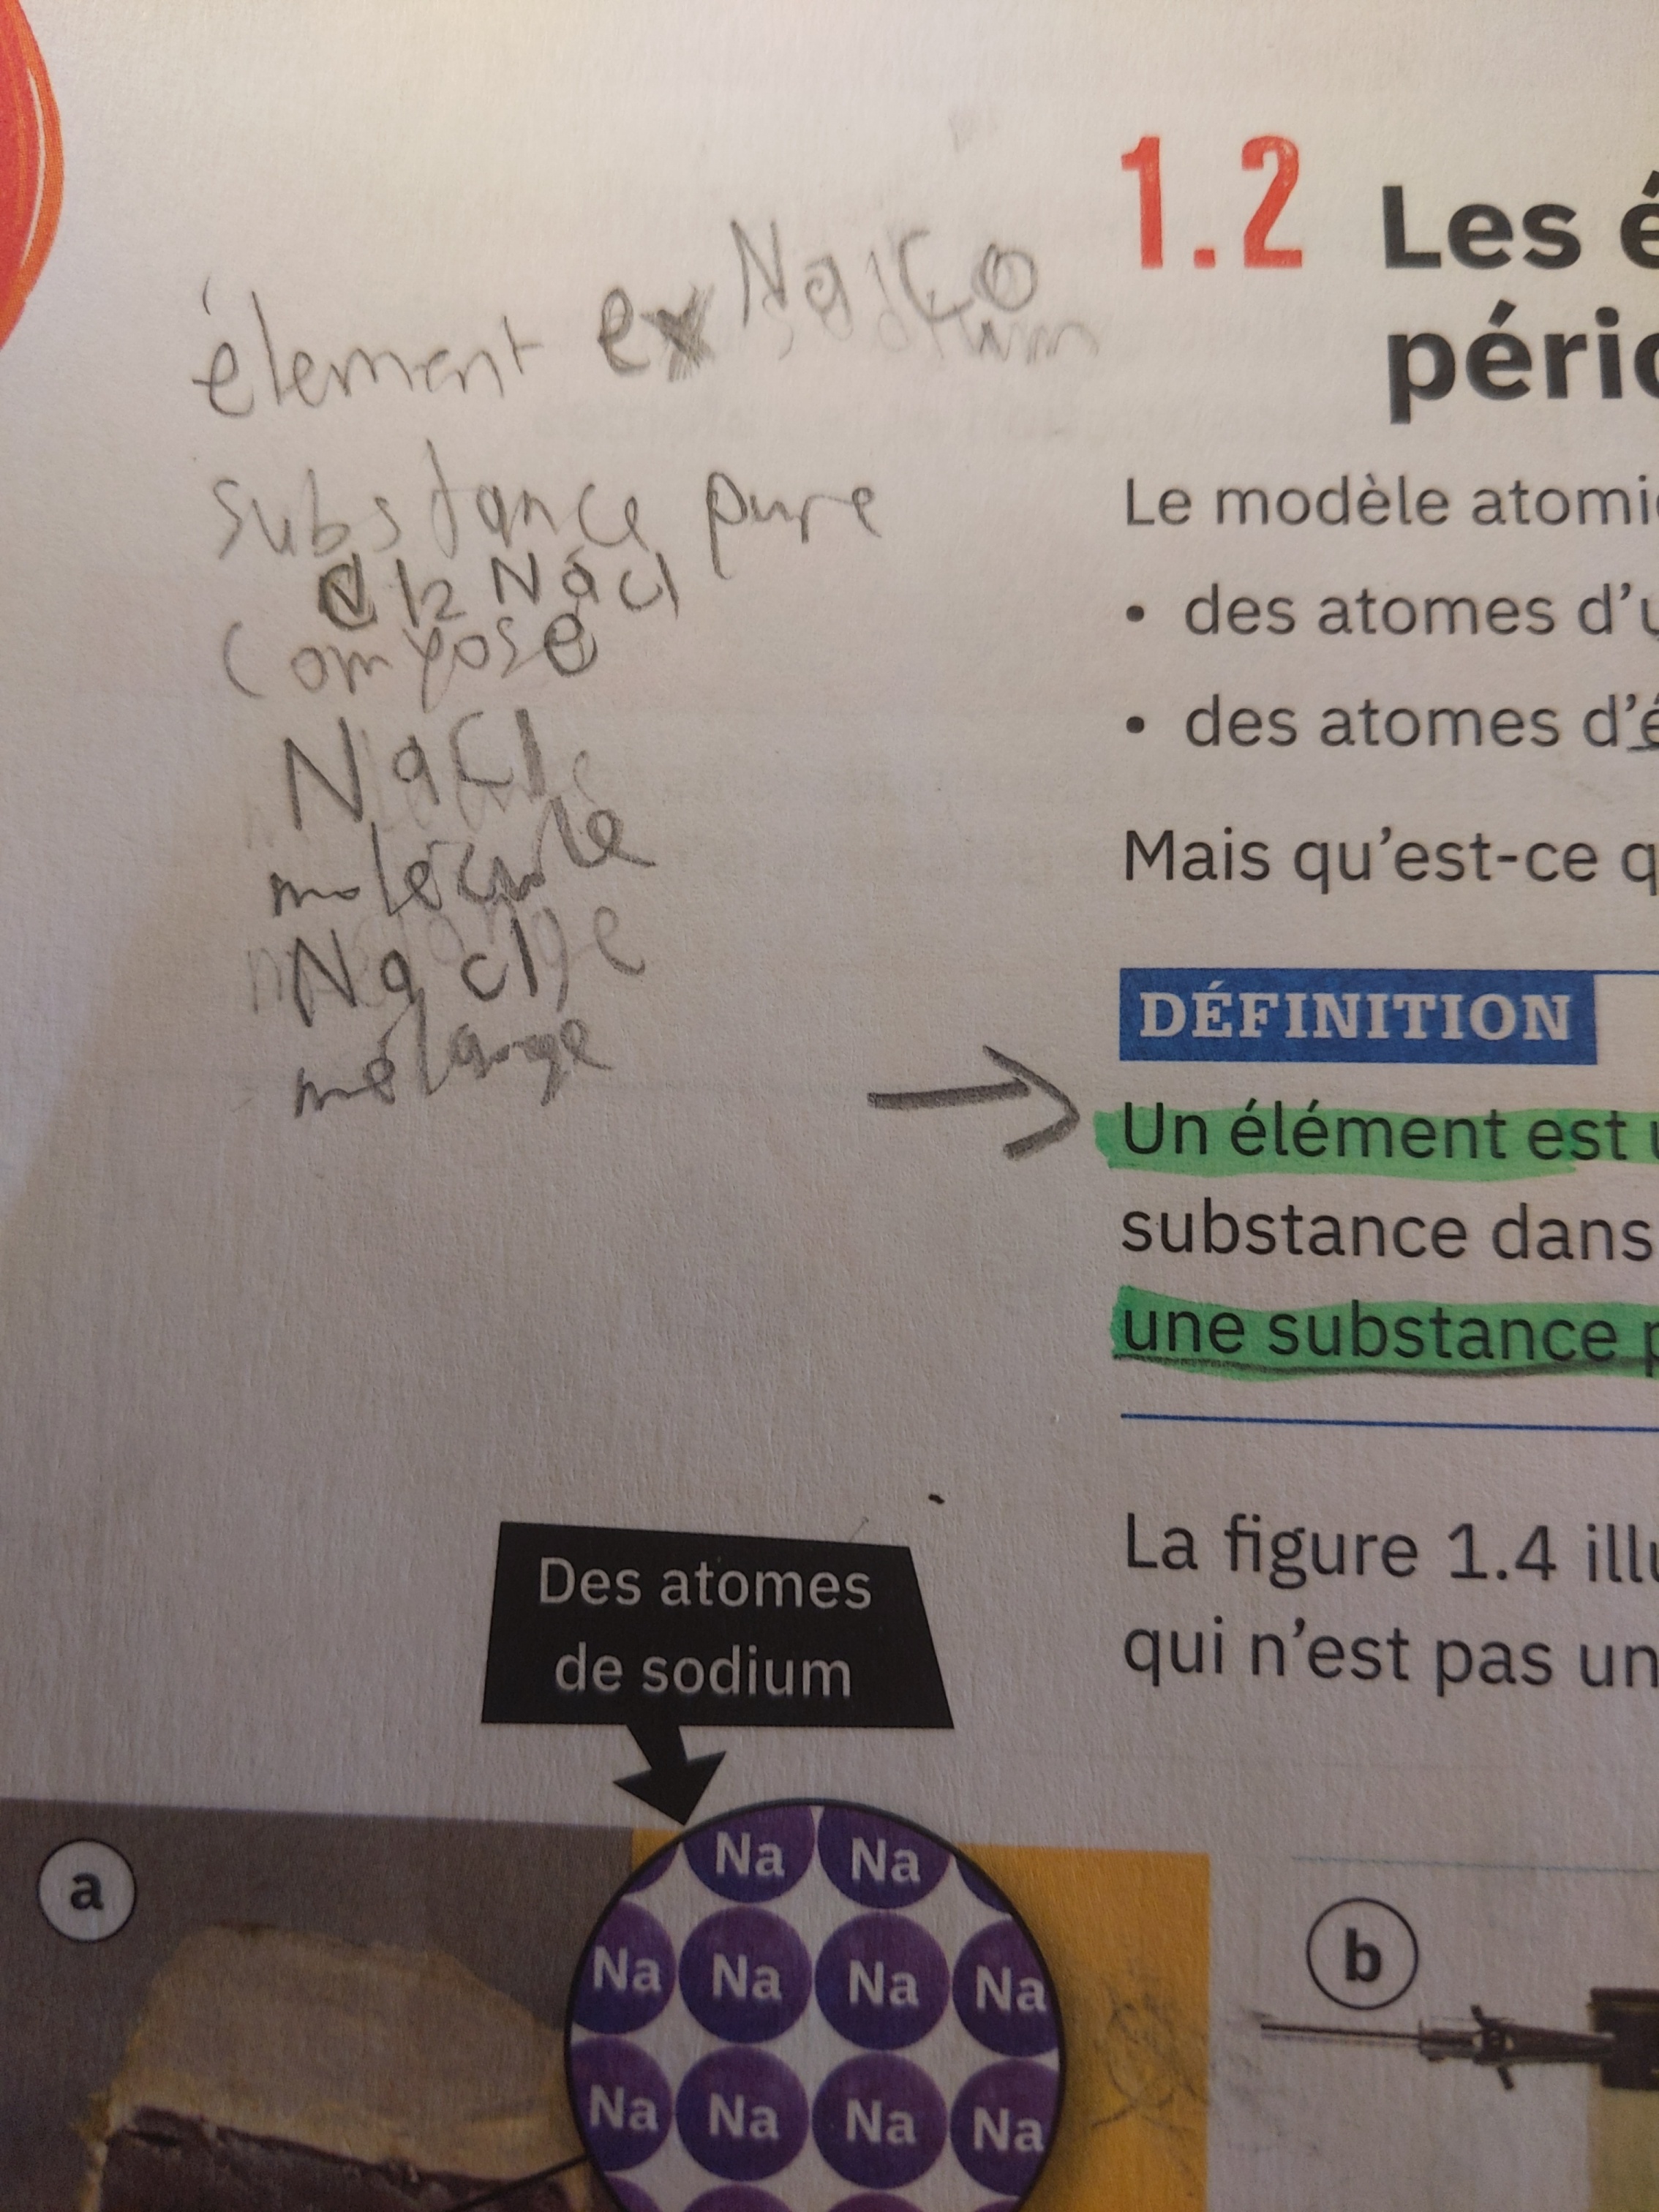 élément ex Na, Co
sodium
substance pure
Cl2 NaCl
composé
NaCl
molécule
NaCl
mélange
1.2 Les é
pério
Le modèle atomi
• des atomes d'u
• des atomes d'é
Mais qu'est-ce q
DÉFINITION
→ Un élément est u
substance dans
une substance p
La figure 1.4 illu
qui n'est pas un
Des atomes
de sodium
a
b
Na Na
Na Na Na Na
Na Na Na Na